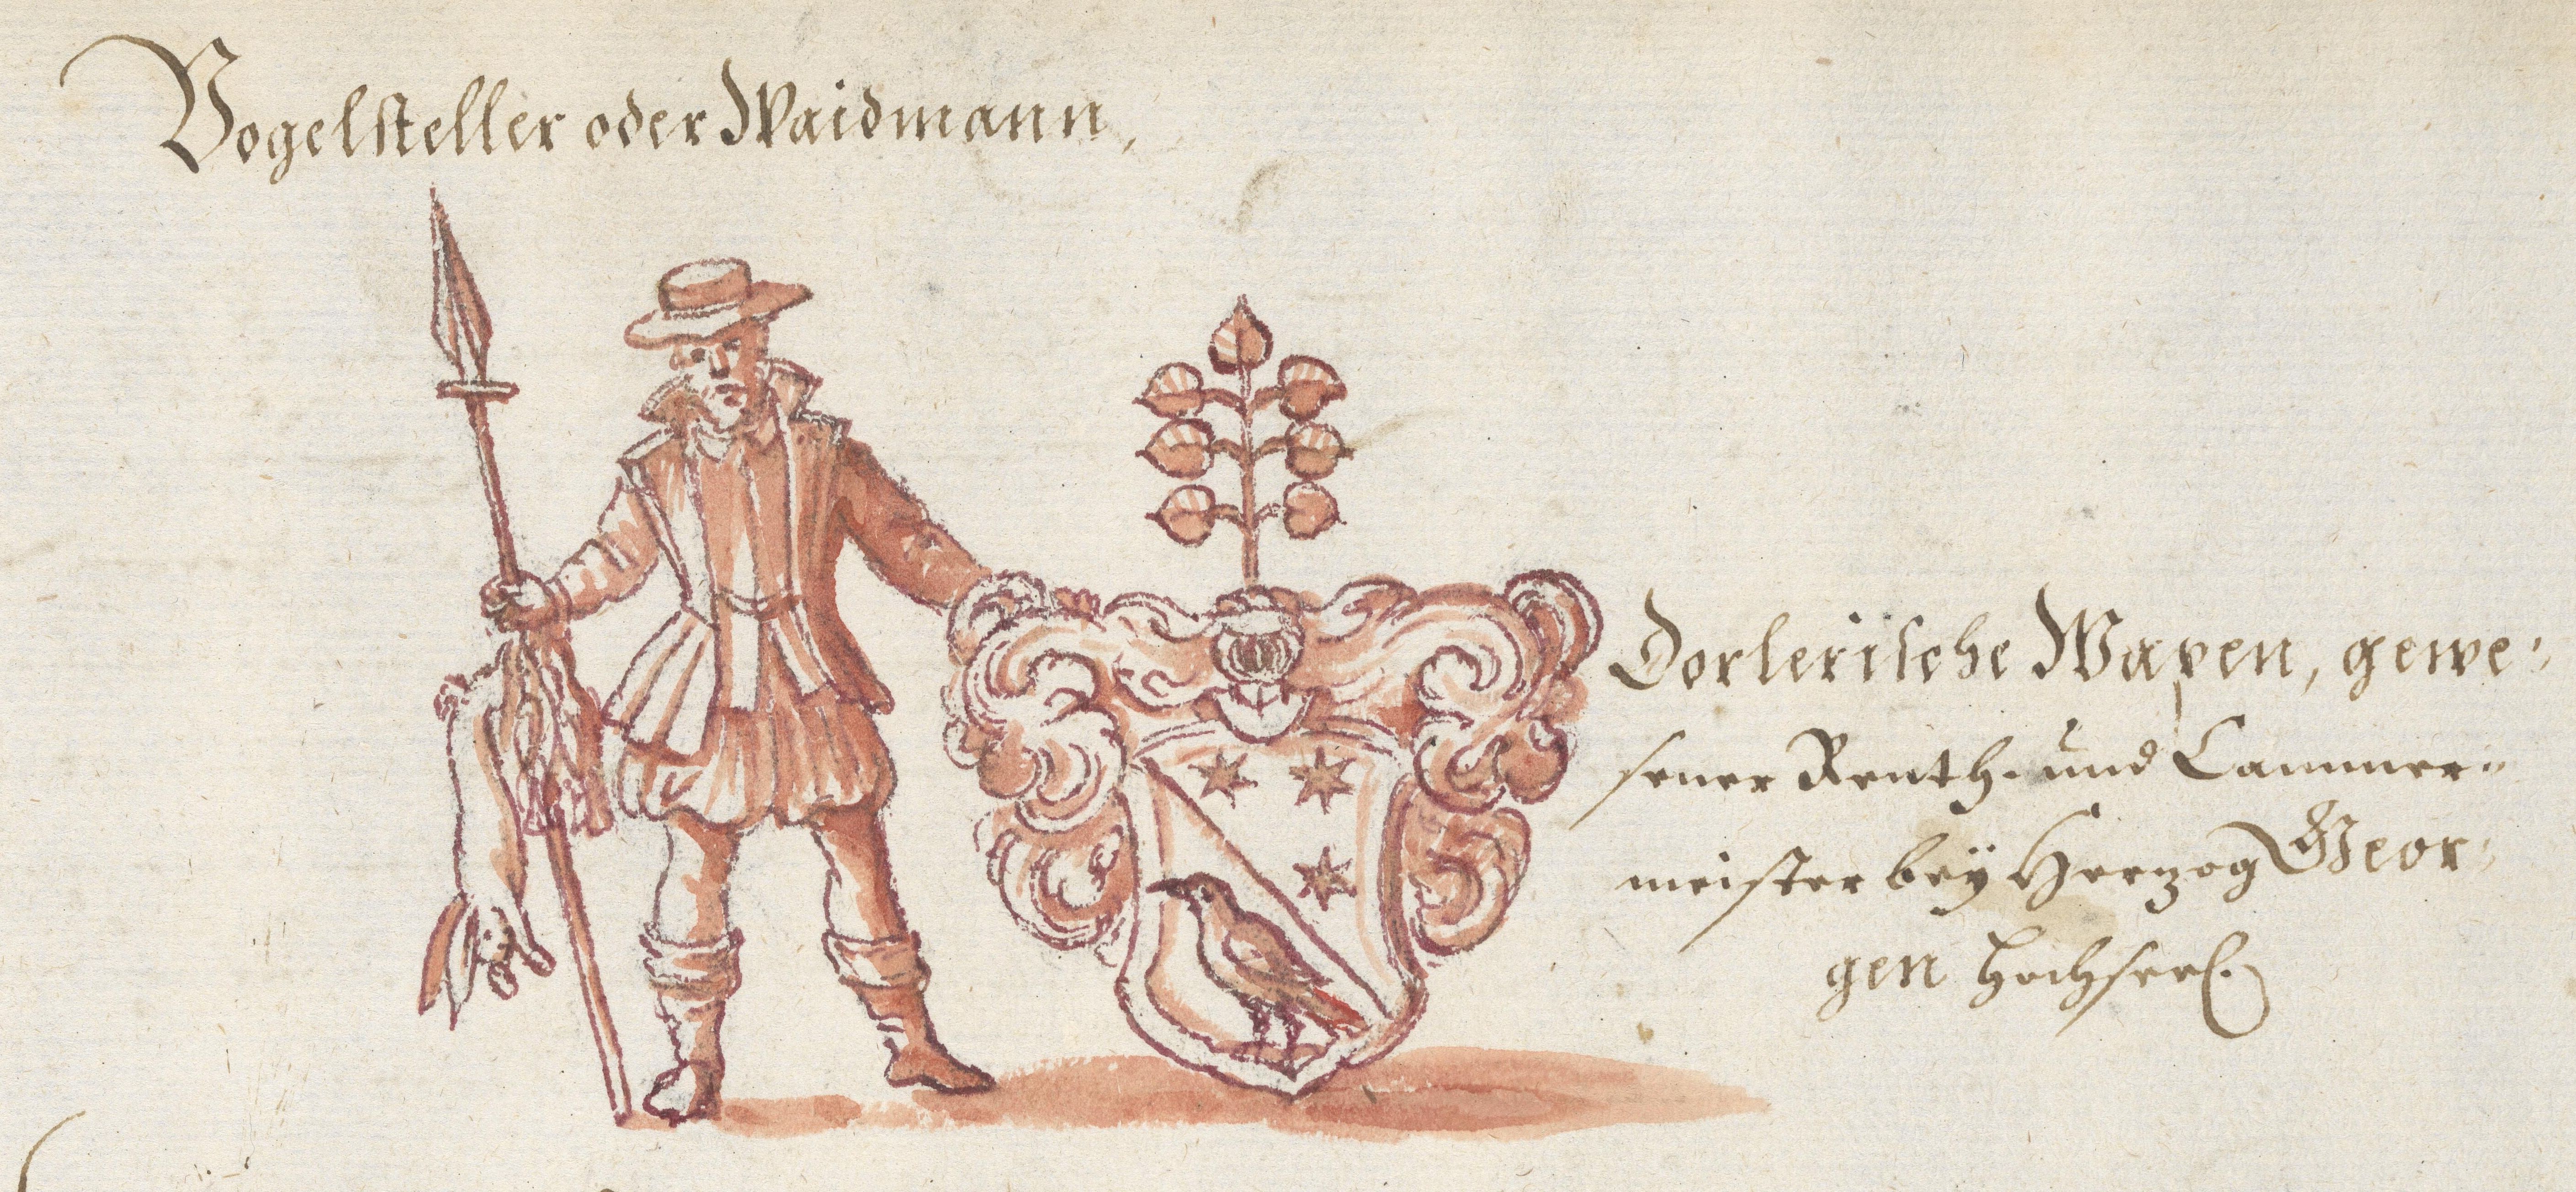 Vogelsteller oder Waidmann,
Dorlerische Wapen, gewe-
sener Renth- und Cammer-
meister bey Herzog Geor-
gen hochseel.